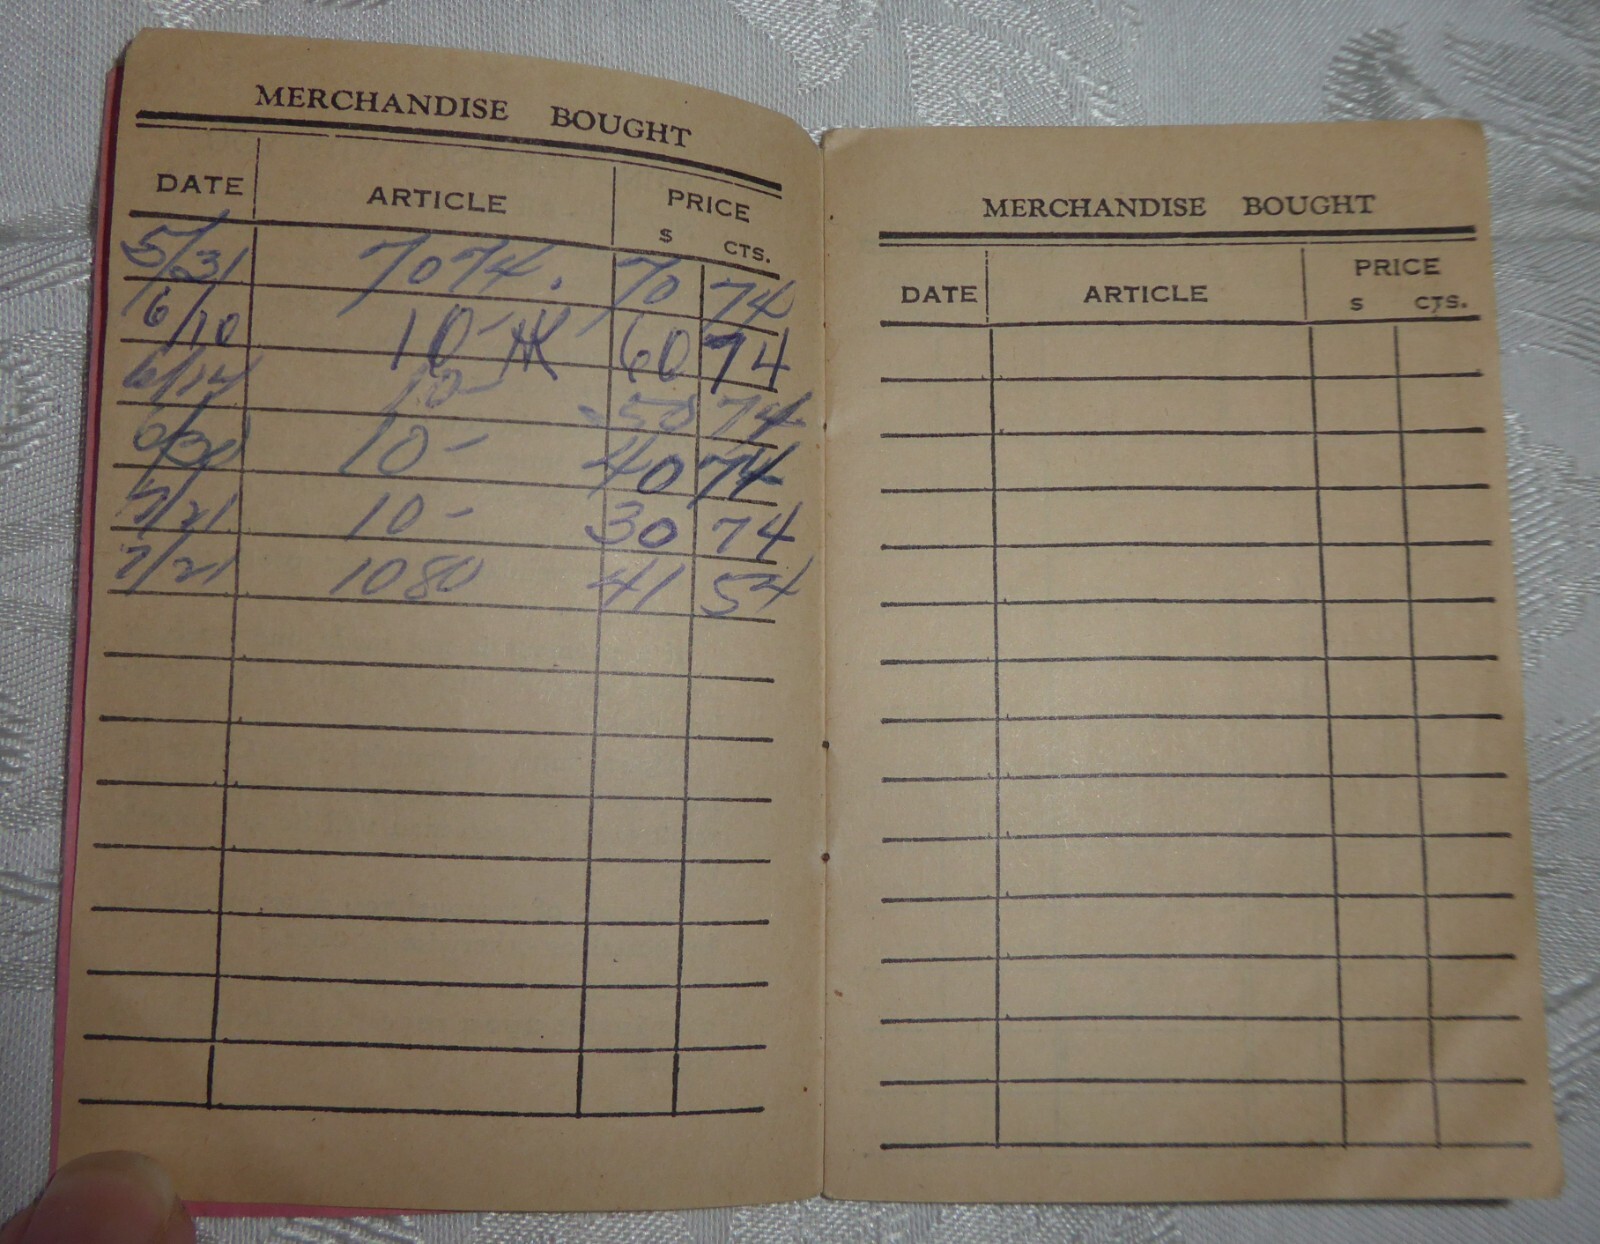 MERCHANDISE BOUGHT
DATE ARTICLE PRICE
$ CTS.
5/31 7074. 70 74
6/10 10- 60 74
6/14 10- 50 74
6/30 10- 40 74
7/21 10- 30 74
7/21 1080 41 54
MERCHANDISE BOUGHT
DATE ARTICLE PRICE
$ CTS.